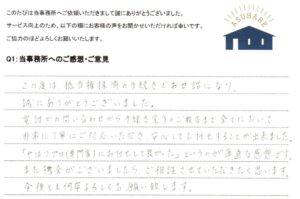 このたびは当事務所へご依頼いただきまして誠にありがとうございました。
サービス向上のため、以下の欄にお客様の声をお聞かせいただければ幸いです。
ご協力のほどよろしくお願いいたします。
ASUHARE
Q1:当事務所へのご感想・ご意見
この度は抵当権抹消の手続きでお世話になり、
誠にありがとうございました。
受付での問い合わせから手続き完了のご報告まで全てにおいて
非常に丁寧にご対応いただき、安心してお任せすることが出来ました。
「やはりプロ(専門家)にお任せして良かった」というのが率直な感想です。
また機会がございましたら、ご相談させていただきたく思います。
今後とも何卒よろしくお願い致します。